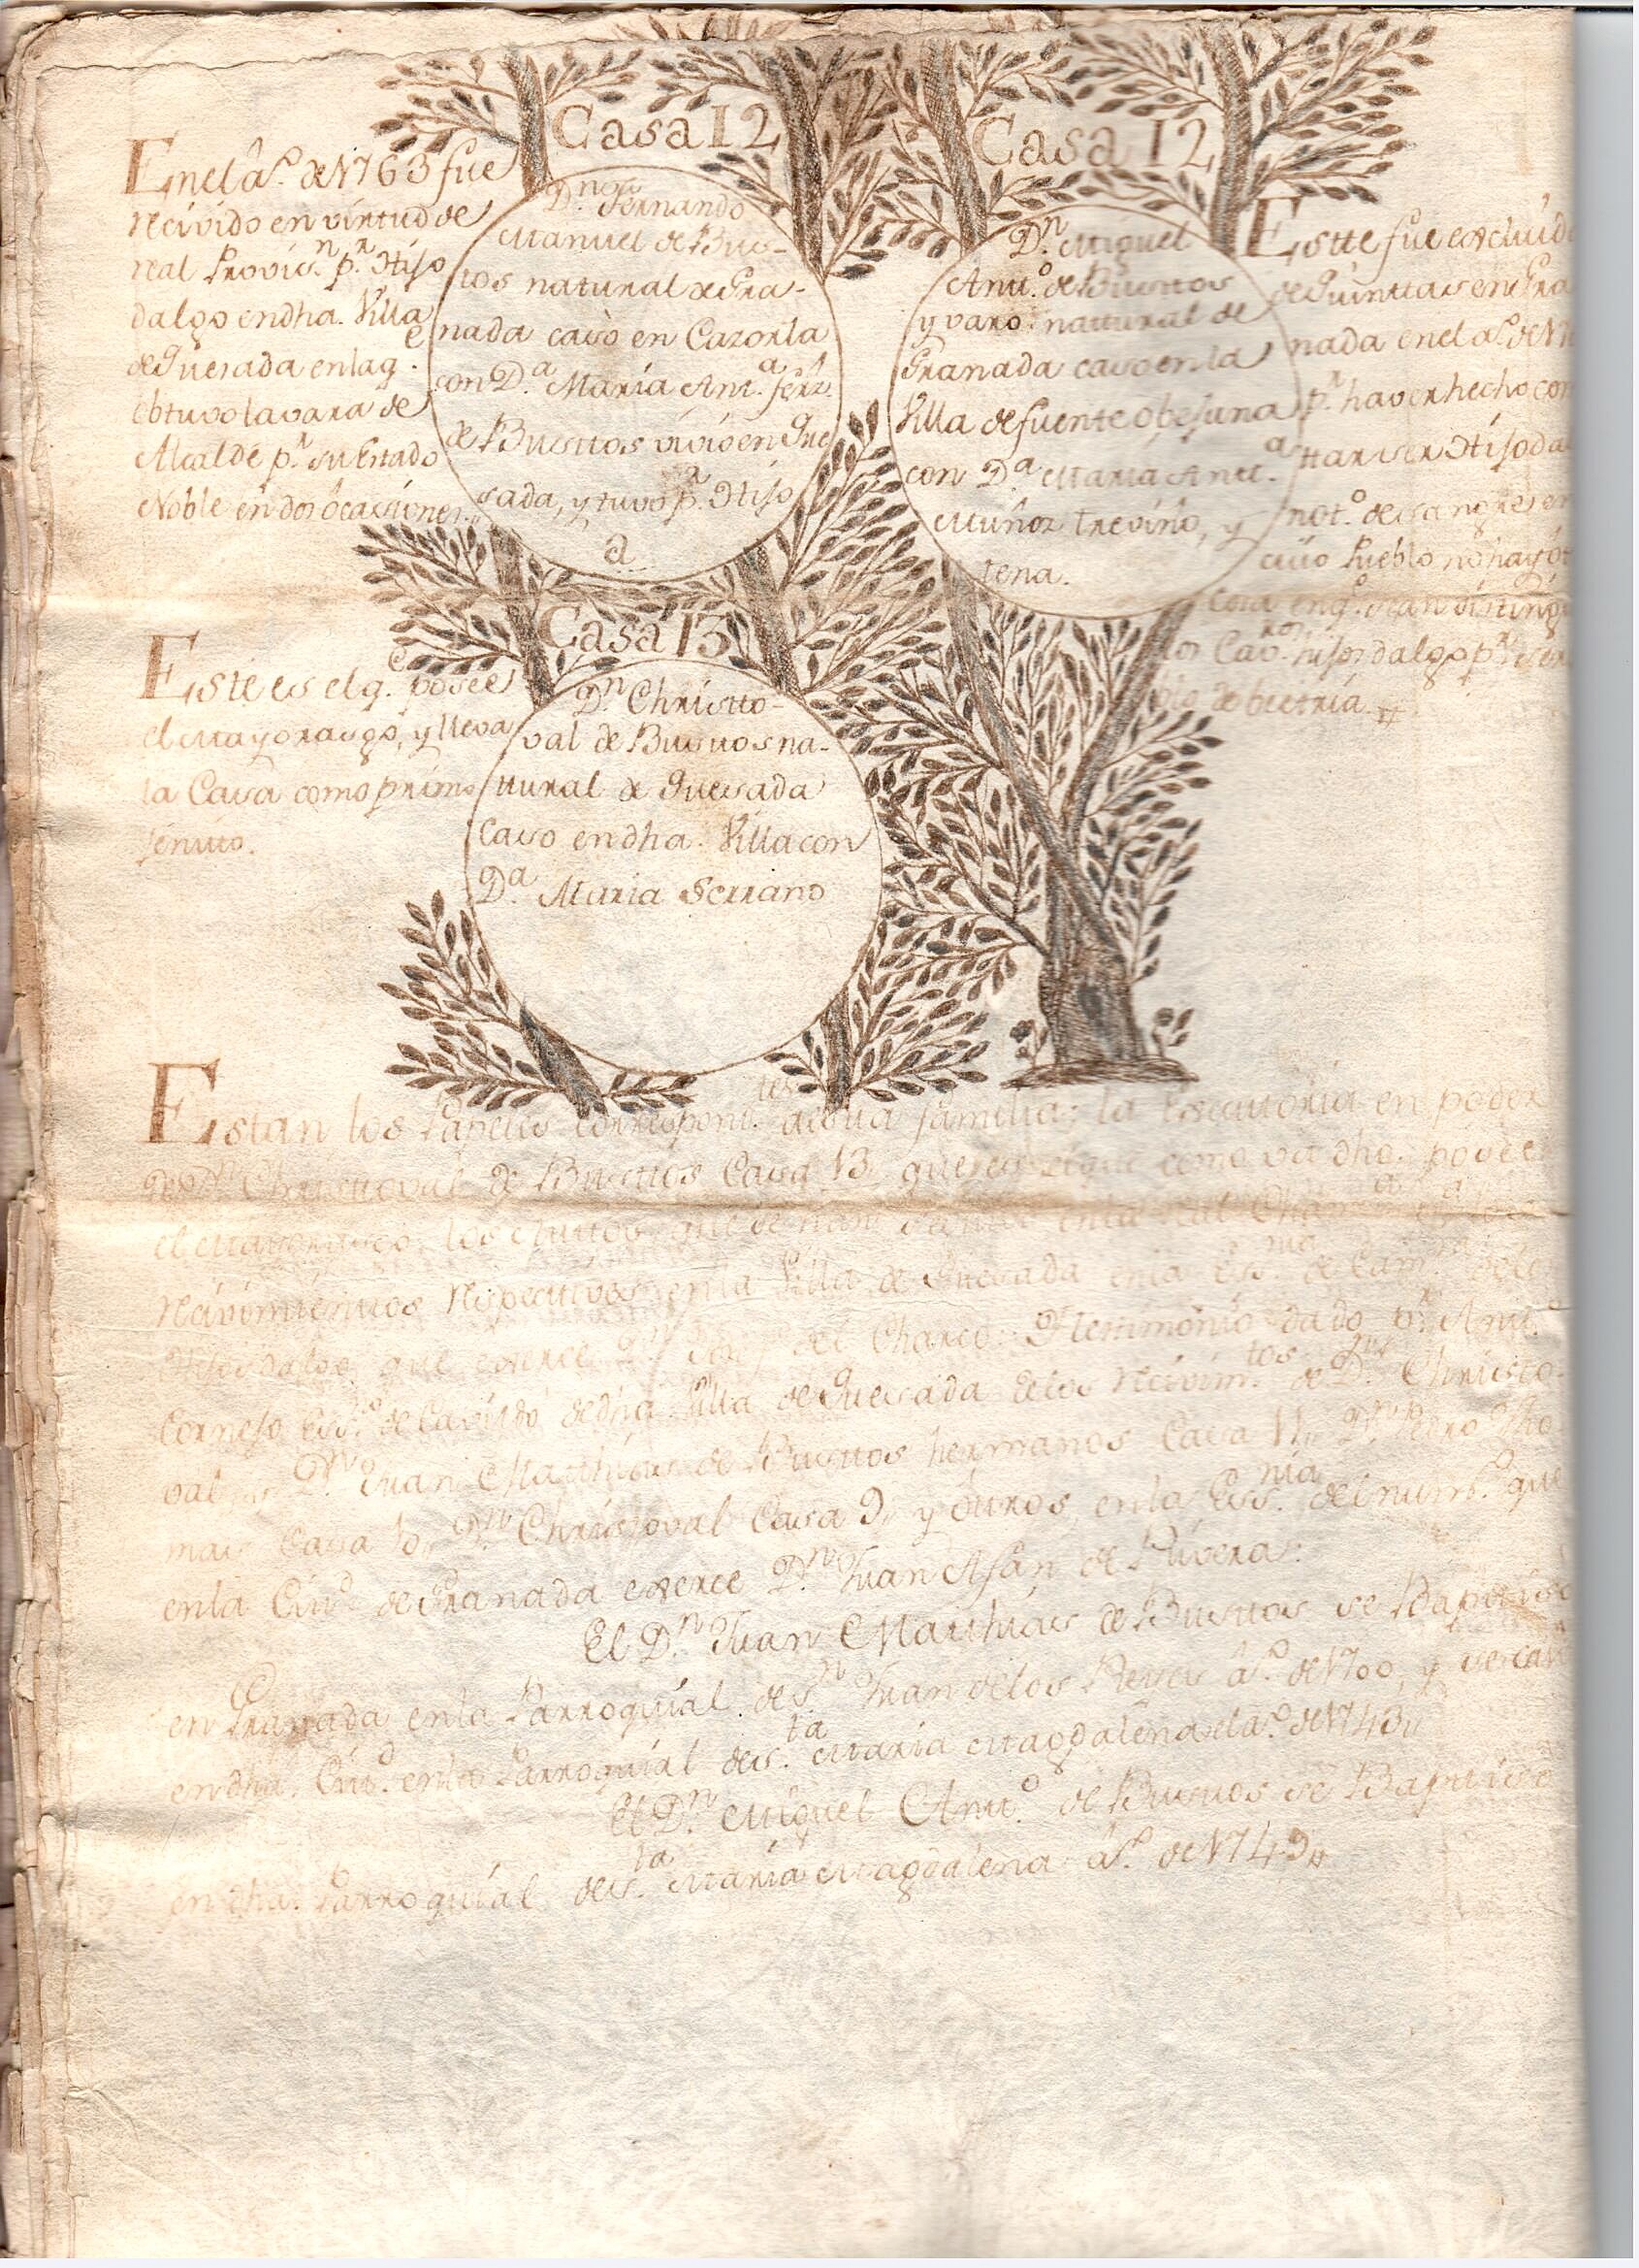 Casa 12
En el añ.º de 1763 fue
recivido en virtud de
real Provis.n p.r Hijo
dalgo en dha. Villa
de Quesada en la q.e
obtuvo la vara de
Alcalde p.r su Estado
Noble en dos ocaciones.
D.n Fernando
Manuel de Bus-
tos natural de Gra-
nada casò en Cazorla
con D.a Maria Ant.a ferz.
de Bustos vivio en Que
sada, y tuvo p.r Hijo
a
Casa 12
D.n Miguel
Ant.º de Busttos
y varo natural de
Granada caso en la
Villa de fuente obejuna
con D.a Maria Antt.a
Muñoz treviño, y
tena.
Estte fue excluid
de Quinttas en Gra
nada en el a.º de 17
p.r haver hecho con
ttar ser Hijoda
not.º de sangre en
cuio Pueblo no hay ot
cosa en q.e sean disting
los Cav.ros hijosdalgo p.r ser
de betria.
Casa 13
Este es el q.e posee
el Mayorasgo, y lleva
la Casa como primo
jenito.
D.n Christto-
val de Bustos na-
ttural de Quesada
Caso en dha. Villa con
D.a Maria Serrano
Estan los Papeles correspon.tes a esta familia; la Executoria en poder
de D.n Christtoval de Busttos Casa 13, que es el que como va dho. posee
el Mayorasgo; los que se han en la Real
Recivimienttos respectivos en la Villa de Quesada en la Ess.nia de Cam.ra
Hijosdalgo que exerce D.n del Charco: Testimonio dado p.r Ant.º
Cornejo Ess.no de Cavildo de dha. Villa de Quesada de los Recivim.tos de D.n Christo-
val D.n Juan Matthias de Busttos hermanos Casa 11, D.n Pedro Tho
mas Casa 10, D.n Christoval Casa 9, y ottros, en la Ess.nia del num.º que
en la Ciu.d de Granada exerce D.n Juan Afan de Rivera:
El D.n Juan Matthias de Busttos se Baptiso
en Granada en la Parroquial de S.n Juan de los Reyes a.º de 1700, y se caso
en dha. Ciu.d en la Parroquial de S.ta Maria Magdalena el a.º de 1743
El D.n Miguel Antt.º de Busttos se Baptiso
en dha. Parroquial de S.ta Maria Magdalena a.º de 1749